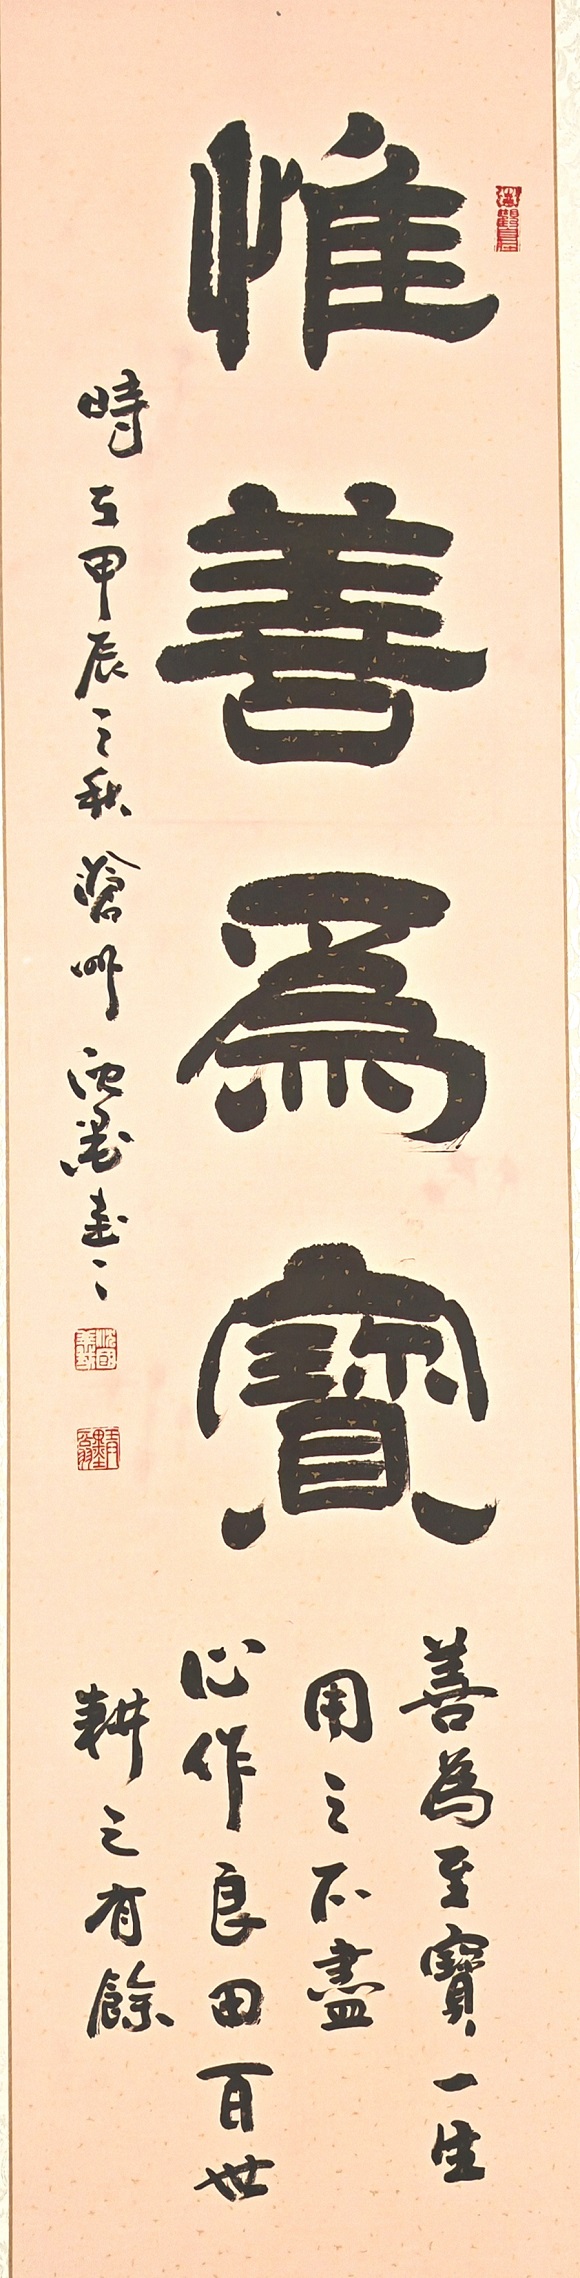 惟善爲寶
善為至寶一生
用之不盡
心作良田百世
耕之有餘
時在甲辰之秋